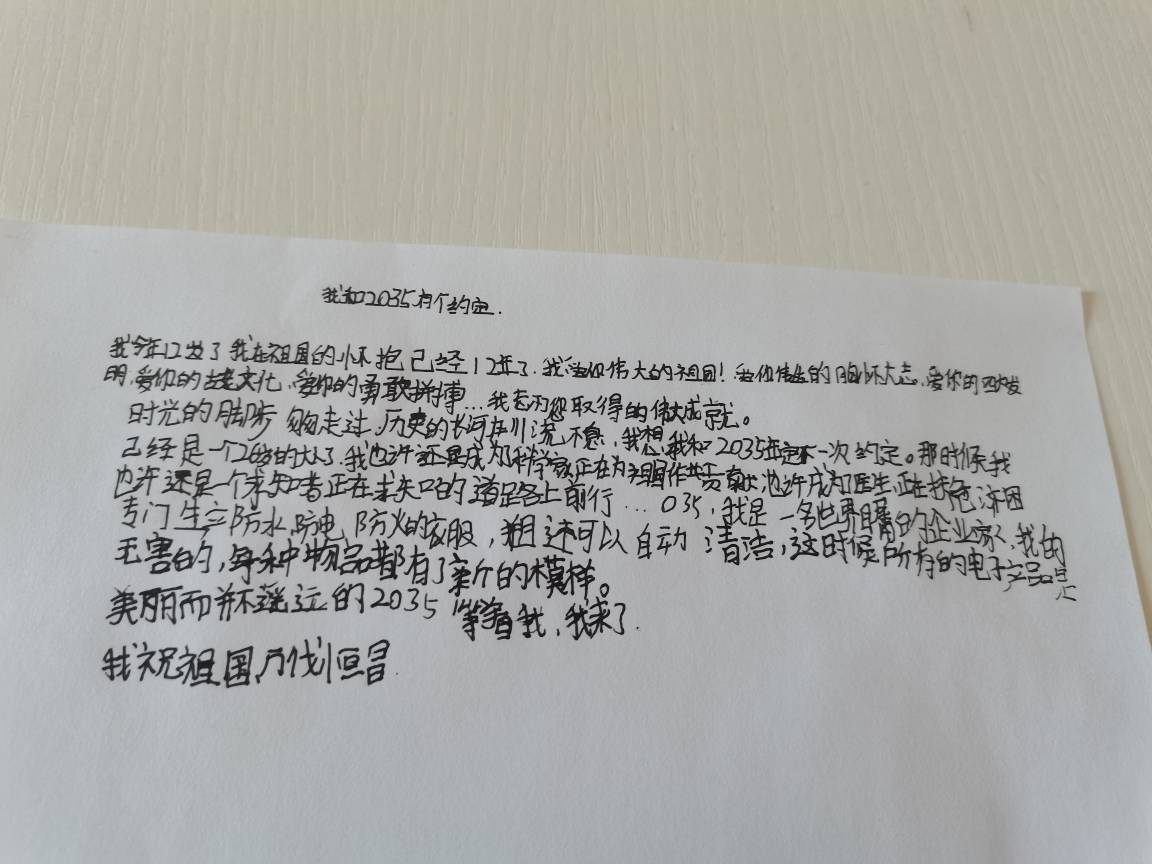 我和2035有个约定.
我今年12岁了 我在祖国的怀抱已经12年了.我爱你伟大的祖国！爱你伟的胸怀大志,爱你的四大发
明,爱你的古老文化,爱你的勇敢拼搏...我志为您取得的伟大成就。
时光的脚步 匆匆走过,历史的长河在川流不息,我想,我和2035年定下一次约定。那时候我
已经是一个26岁的大人了.我也许还是成为科学家正在为祖国作共贡献,也许成为医生,正在抢
也许还是一个求知者正在求知的道路上前行...035,我是一名世界瞩目的企业家,我的
专门生产防水防电防火的衣服,粗还可以自动 清洁,这时候所有的电子产品是
无害的,每种物品都有了新的模样。
美丽而并不遥远的2035 等着我,我来了.
我祝祖国,万代恒昌.